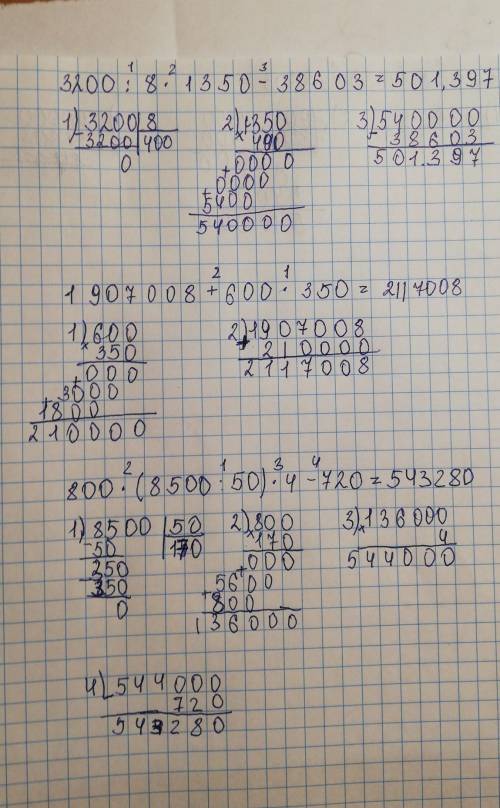 1 2 3
3200 : 8 · 1350 - 38603 = 501,397
1) 3200 | 8 2) 1350 3) 540000
- 3200 | 400 × 400 - 38603
0 + 0000 501.397
+ 0000
5400
540000
2 1
1907008 + 600 · 350 = 2117008
1) 600 2) 1907008
× 350 + 210000
+ 000 2117008
+ 3000
1800
210000
2 1 3 4
800 · (8500 : 50) · 4 - 720 = 543280
1) 8500 | 50 2) 800 3) 136000
50 | 170 × 170 × 4
350 + 000 544000
350 + 5600
0 800
136000
4) 544000
- 720
543280